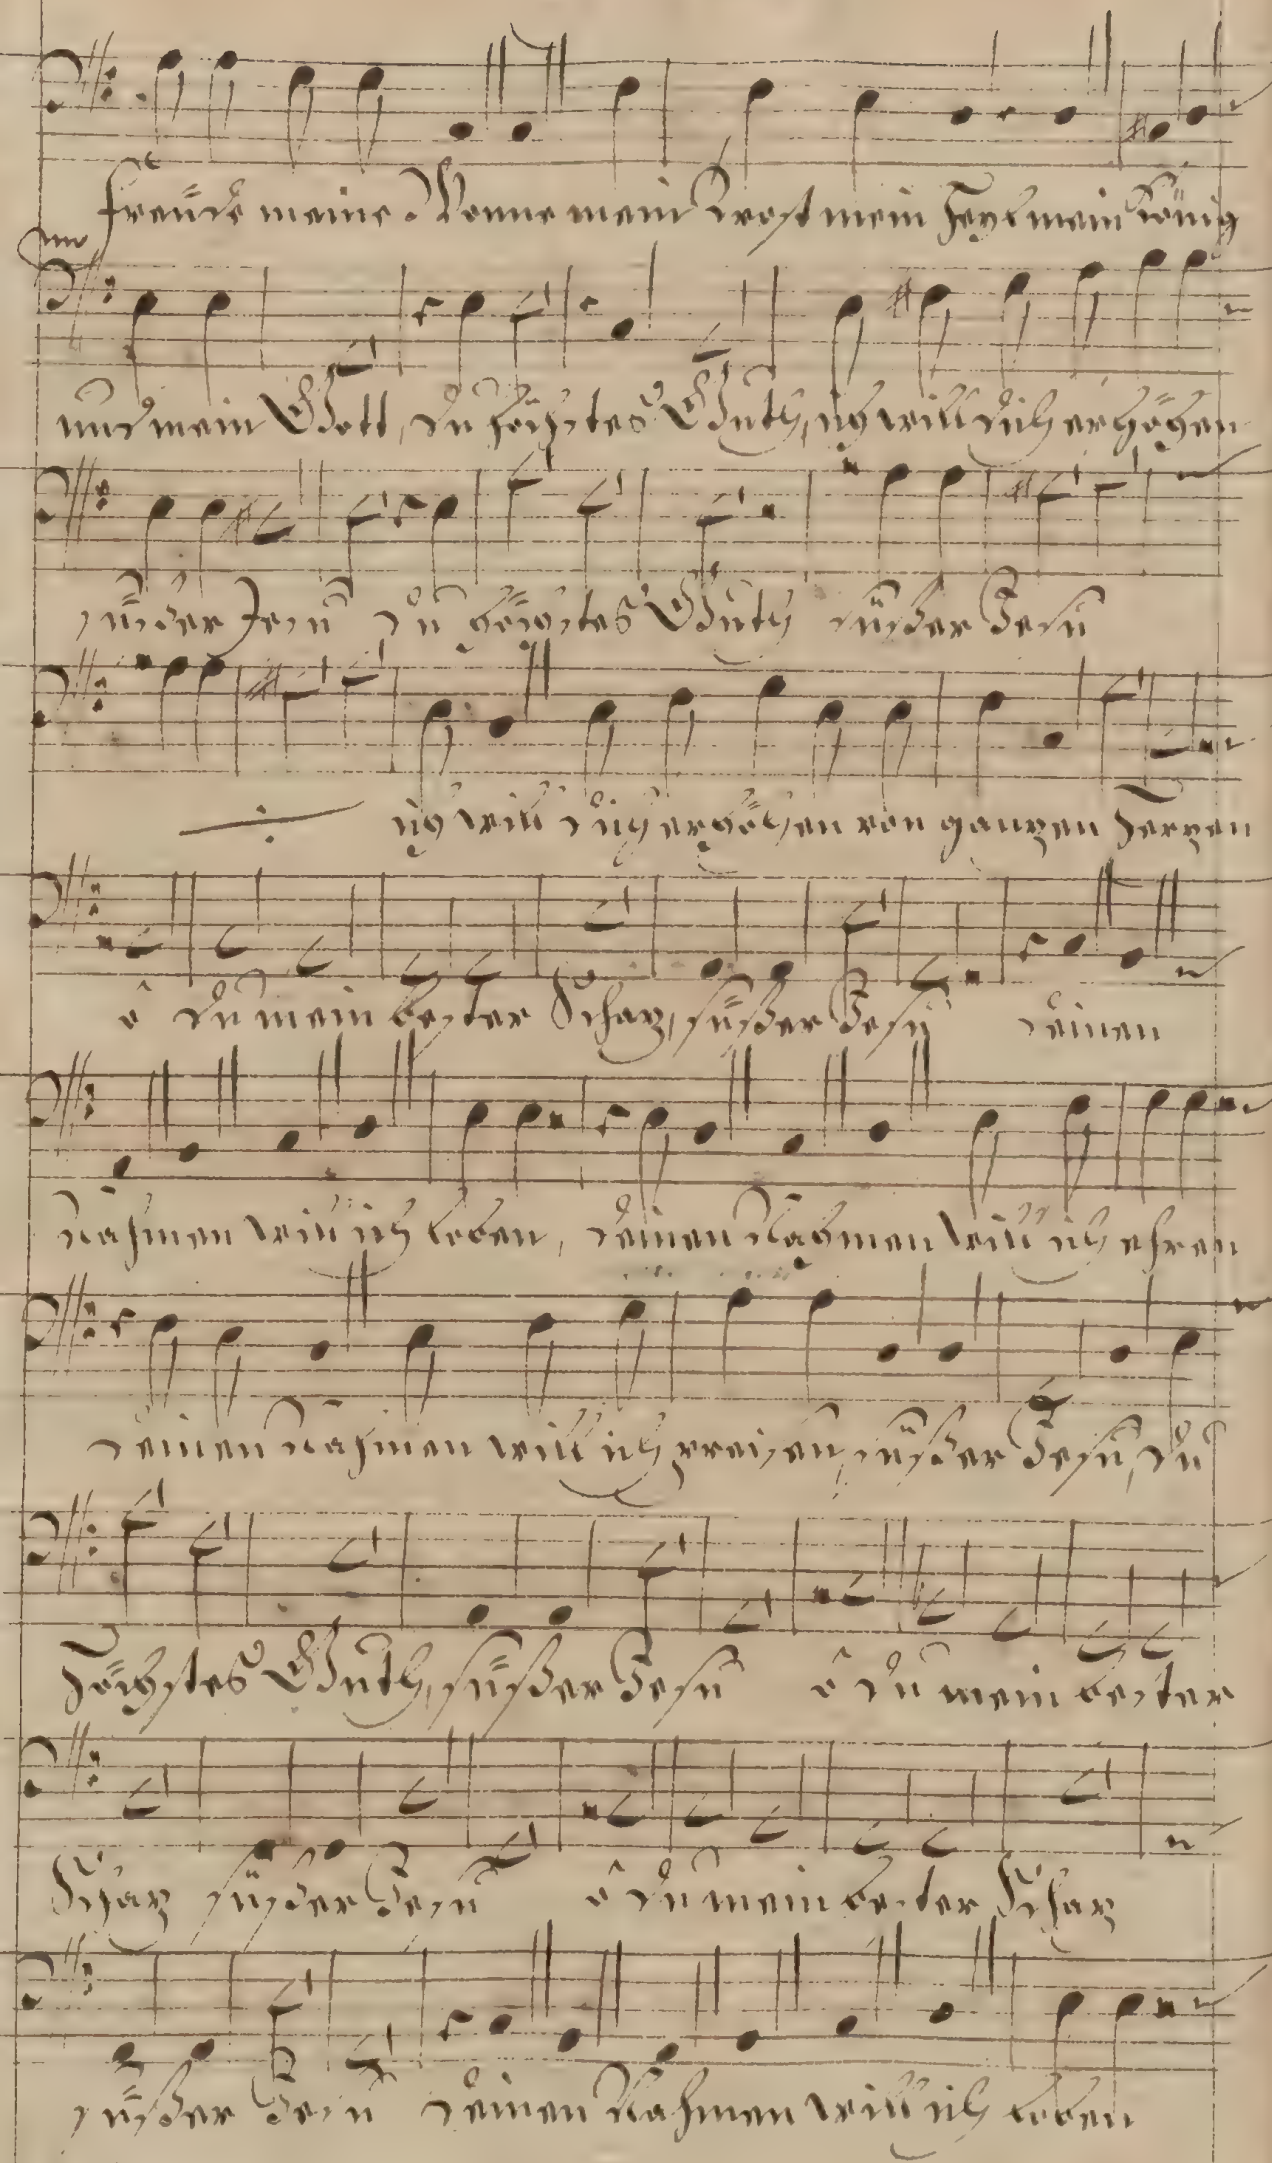 freüde meine Wonne mein Trost mein Heyl mein König
und mein Gott, du höchstes Guth, ich will dich erhöhen
süßer Jesu du höchstes Guth süßer Jesu
ich will dich erhöhen von ganzen Herzen
ô du mein bester Schaz, süßer Jesu deinen
Nahmen will ich loben, deinen Nahmen will ich ehren
deinen Nahmen will ich preisen, süßer Jesu, du
höchstes Guth, süßer Jesu ô du mein bester
Schaz süßer Jesu ô du mein bester Schaz
süßer Jesu deinen Nahmen will ich loben